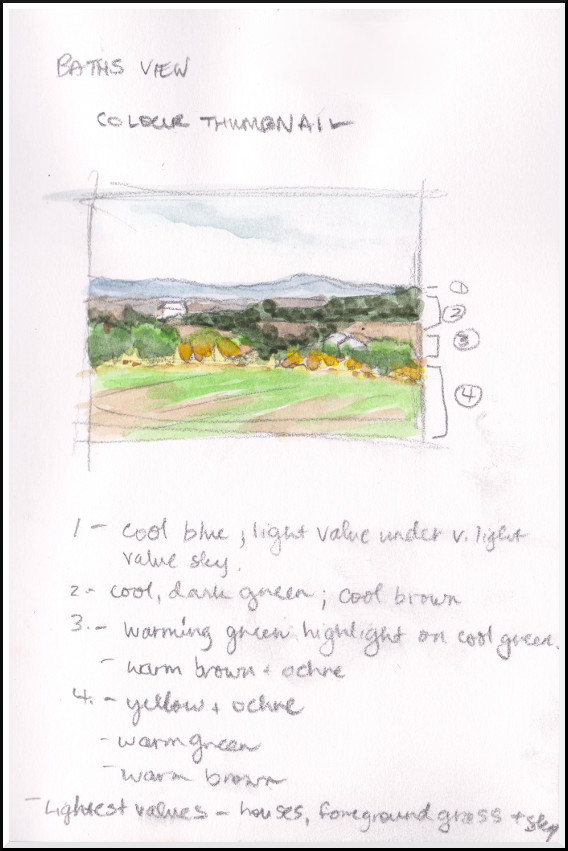 BATHS VIEW
COLOUR THUMBNAIL
1
2
3
4
1 - cool blue, light value under v. light
value sky.
2.- cool, dark green; cool brown
3.- warming green highlight on cool green.
- warm brown + ochre
4. - yellow + ochre
- warm green
- warm brown
- Lightest values - houses, foreground grass + sky